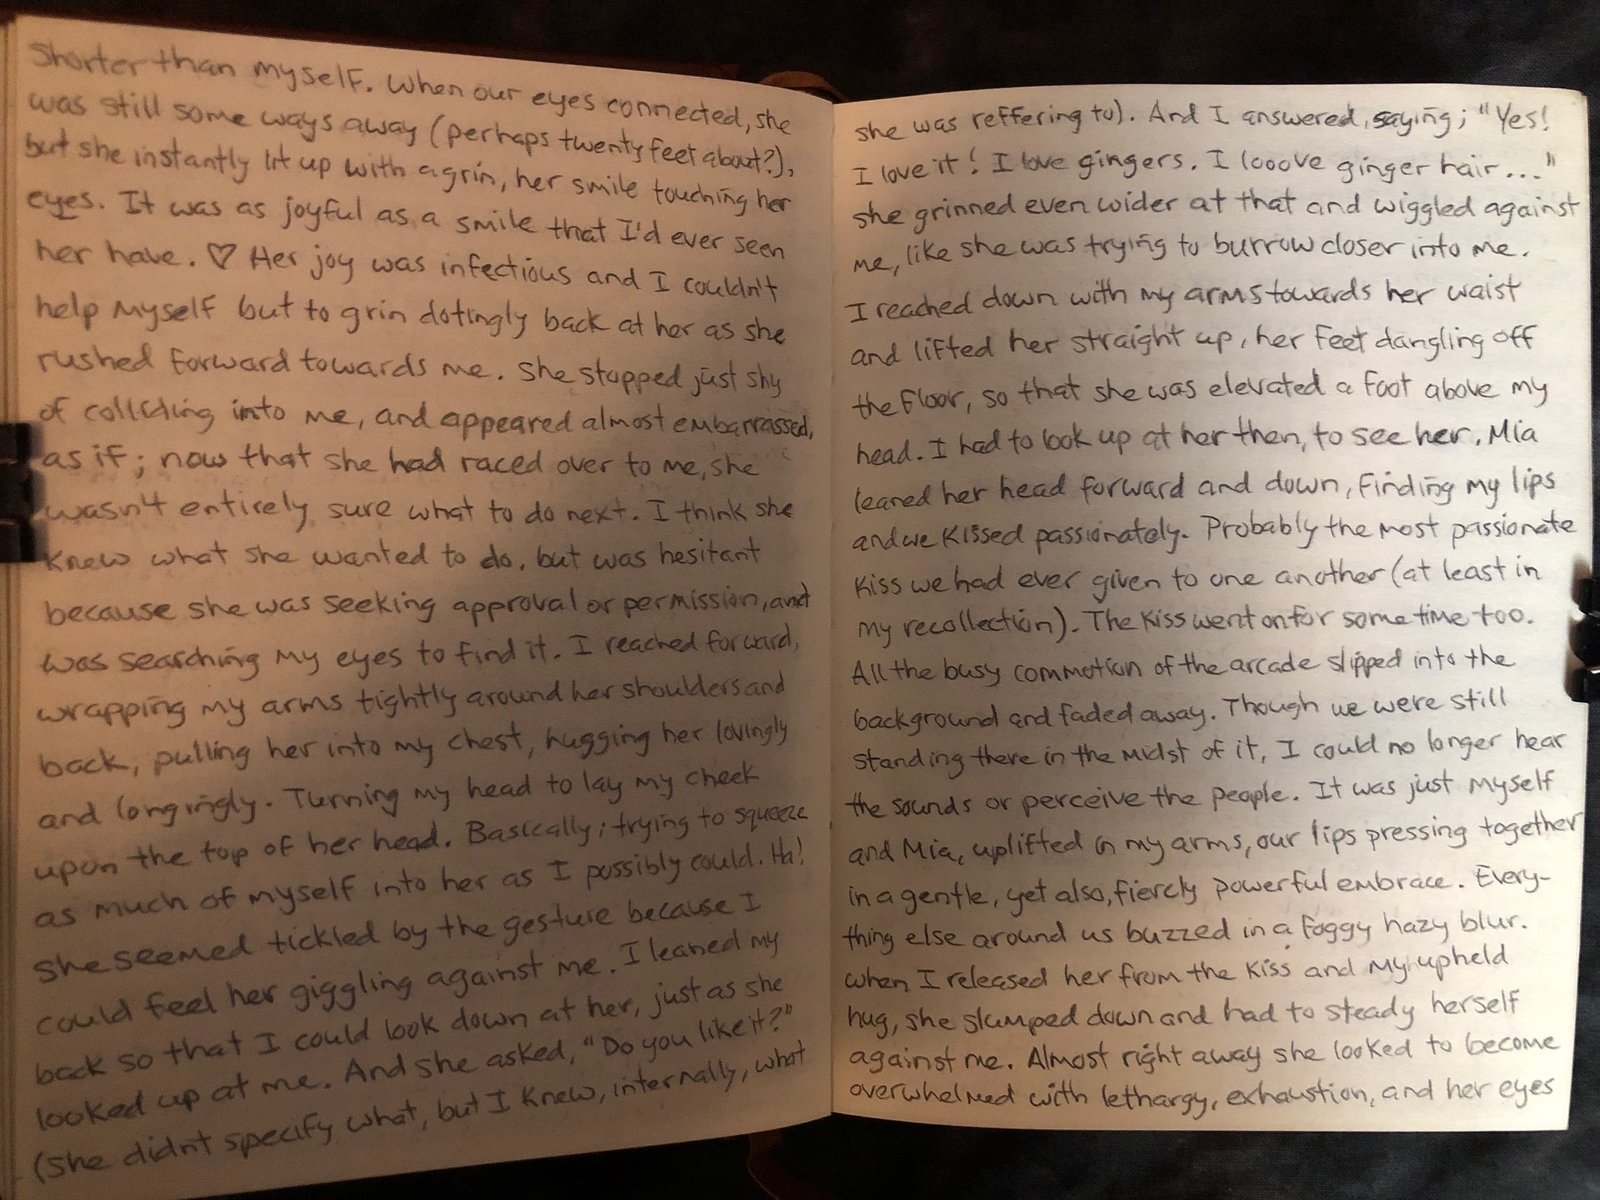 Shorter than myself. When our eyes connected, she
was still some ways away (perhaps twenty feet about?),
but she instantly lit up with a grin, her smile touching her
eyes. It was as joyful as a smile that I'd ever seen
her have. ♡ Her joy was infectious and I couldn't
help myself but to grin dotingly back at her as she
rushed forward towards me. She stopped just shy
of colliding into me, and appeared almost embarrassed,
as if; now that she had raced over to me, she
wasn't entirely sure what to do next. I think she
knew what she wanted to do, but was hesitant
because she was seeking approval or permission, and
was searching my eyes to find it. I reached forward,
wrapping my arms tightly around her shoulders and
back, pulling her into my chest, hugging her lovingly
and longingly. Turning my head to lay my cheek
upon the top of her head. Basically; trying to squeeze
as much of myself into her as I possibly could. Ha!
She seemed tickled by the gesture because I
could feel her giggling against me. I leaned my
back so that I could look down at her, just as she
looked up at me. And she asked, "Do you like it?"
(She didn't specify what, but I knew, internally, what
she was reffering to). And I answered, saying; "Yes!
I love it! I love gingers. I looove ginger hair..."
she grinned even wider at that and wiggled against
me, like she was trying to burrow closer into me.
I reached down with my arms towards her waist
and lifted her straight up, her feet dangling off
the floor, so that she was elevated a foot above my
head. I had to look up at her then, to see her. Mia
leaned her head forward and down, finding my lips
and we kissed passionately. Probably the most passionate
kiss we had ever given to one another (at least in
my recollection). The kiss went on for some time too.
All the busy commotion of the arcade slipped into the
background and faded away. Though we were still
standing there in the midst of it, I could no longer hear
the sounds or perceive the people. It was just myself
and Mia, uplifted in my arms, our lips pressing together
in a gentle, yet also, fiercly powerful embrace. Every-
thing else around us buzzed in a foggy hazy blur.
When I released her from the kiss and my upheld
hug, she slumped down and had to steady herself
against me. Almost right away she looked to become
overwhelmed with lethargy, exhaustion, and her eyes